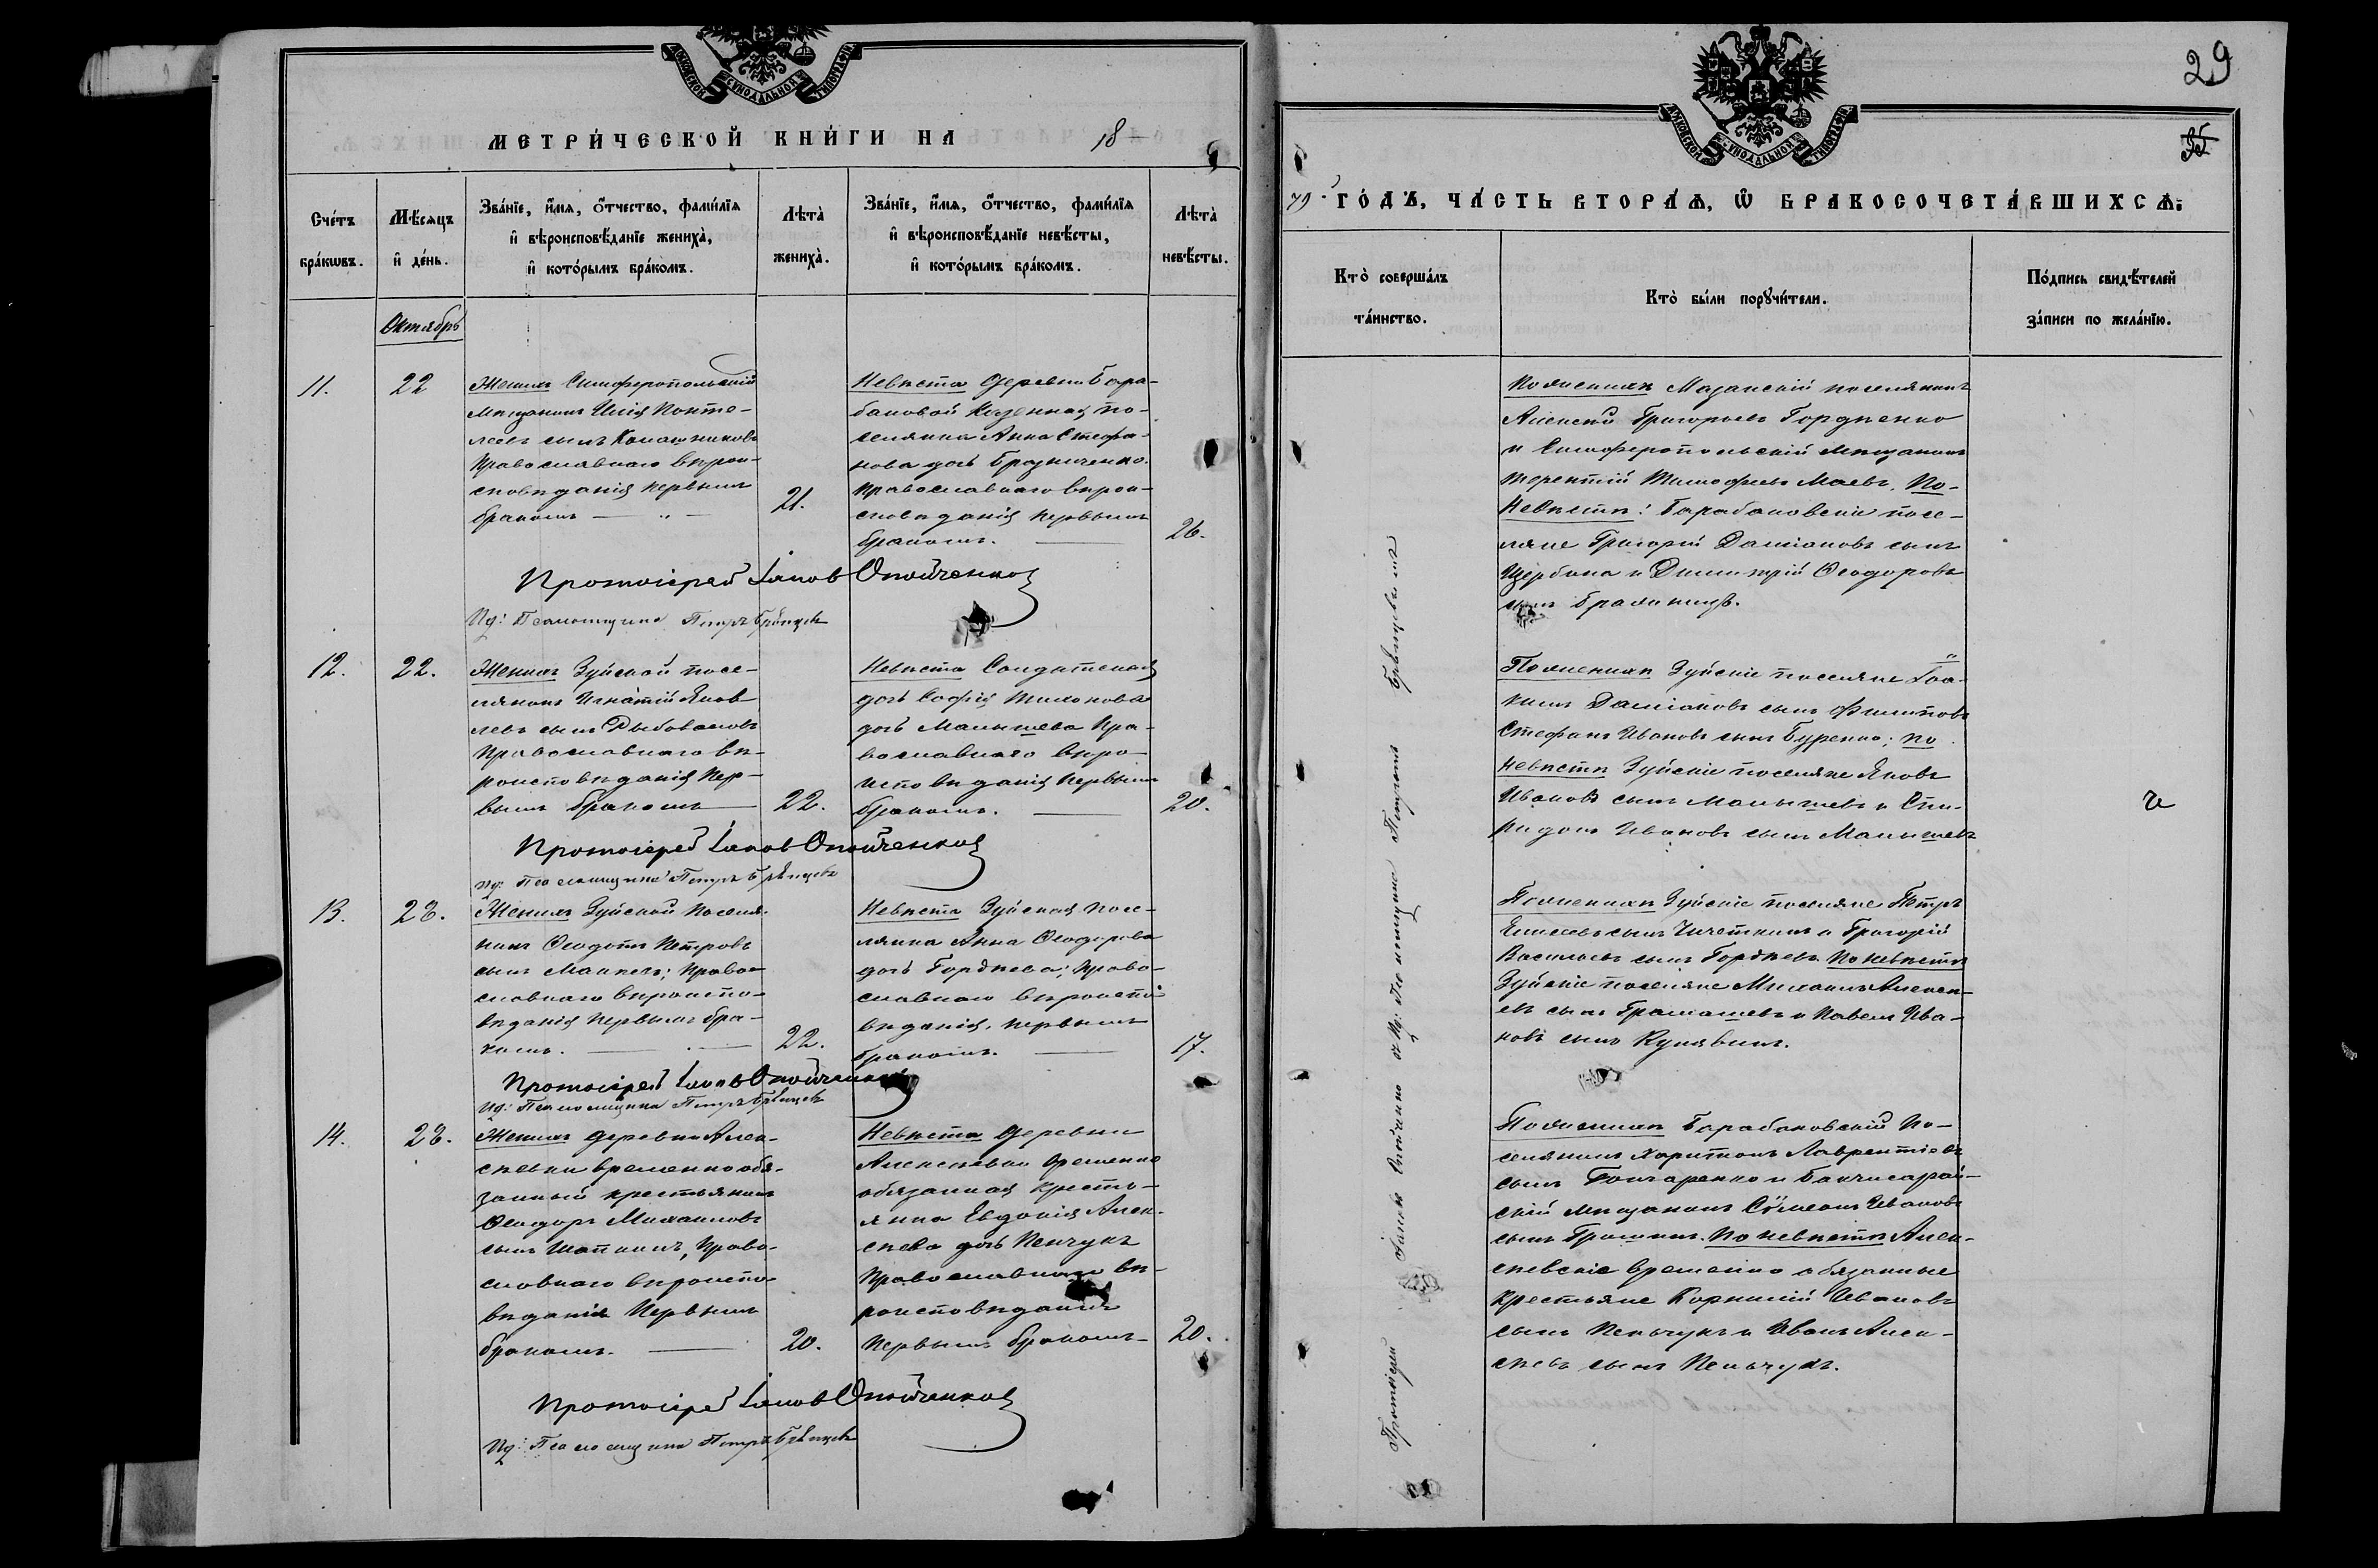 МЕТРИ́ЧЕСКОЙ КНИ́ГИ НА 18
Сче́тъ бра́кωвъ.
Мѣ́сяцъ и де́нь.
Зва́нїе, и́мя, о́тчество, фами́лїя
и вѣроисповѣ́данїе жениха̀,
и кото́рымъ бра́комъ.
Лѣта̀ жениха̀.
Зва́нїе, и́мя, о́тчество, фами́лїя
и вѣроисповѣ́данїе невѣ́сты,
и кото́рымъ бра́комъ.
Лѣта̀ невѣ́сты.
Октябрь
11.
22
Женихъ Симферопольскій
мѣщанинъ Илія Панте-
леевъ сынъ
Православнаго вѣрои-
сповѣданія первымъ
бракомъ
21.
Невѣста деревни Бара-
бановой Казенная по-
селянка Анна Стефа-
нова дочь
православнаго вѣрои-
сповѣданія первымъ
бракомъ.
26.
Протоіерей Іаковъ Опойченко
Ид: Псаломщика Петръ Брянцевъ
12.
22.
Женихъ Зуйской посе-
лянинъ Игнатій Яков
левъ сынъ Рыбоваловъ
православнаго вѣ-
роисповѣданія пер-
вымъ бракомъ
22.
Невѣста Солдатская
дочь Софія Тихонова
дочь Малышева пра-
вославнаго вѣро-
исповѣданія первымъ
бракомъ.
20.
Протоіерей Іаковъ Опойченко
Ид: Псаломщика Петръ Брянцевъ
13.
23.
Женихъ Зуйской поселя-
нинъ Ѳеодотъ Петровъ
сынъ; право-
славнаго вѣроиспо-
вѣданія первымъ бра-
комъ.
22.
Невѣста Зуйская посе-
лянка Анна Ѳеодорова
дочь Гордѣева; право-
славнаго вѣроиспо-
вѣданія, первымъ
бракомъ.
17.
Протоіерей Іаковъ Опойченко
Ид: Псаломщика Петръ Брянцевъ
14.
23.
Женихъ деревни Алек-
сѣевки временно обя-
занный крестьянинъ
Ѳеодоръ Михаиловъ
сынъ Шапкинъ, право-
славнаго вѣроиспо-
вѣданія первымъ
бракомъ.
20.
Невѣста деревни
Алексѣевки временно
обязанная кресть-
янка Евдокія Алек-
сѣева дочь Пенчукъ
православнаго вѣ-
роисповѣданія
первымъ бракомъ
20.
Протоіерей Іаковъ Опойченко
Ид: Псаломщика Петръ Брянцевъ
29
79 ГО́ДЪ, ЧА́СТЬ ВТОРА́Ѧ, Ѡ БРАКОСОЧЕТА́ВШИХСѦ:
Кто̀ соверша́лъ та́инство.
Кто̀ бы́ли порꙋчи́тели.
По́дпись свидѣ́телей
за́писи по жела́нїю.
Протоіерей Іаковъ Опойченко съ Ид: Псаломщика Петромъ Брянцевымъ
По женихѣ Мазанскій поселянинъ
Алексѣй Григорьевъ Гордѣенко
и Симферопольскій мѣщанинъ
Терентій Тимофеевъ Маевъ. По
Невѣстѣ: Барабановскіе посе-
ляне Григорій Даміановъ сынъ
Щербина и Димитрій Ѳеодоровъ
сынъ
По женихѣ Зуйскіе поселяне Іоа-
кимъ Даміановъ сынъ Филиповъ
Стефанъ Ивановъ сынъ Буренко; по
невѣстѣ Зуйскіе поселяне Яковъ
Ивановъ сынъ Малышевъ и Спи-
ридонъ Ивановъ сынъ Малышевъ
По женихѣ Зуйскіе поселяне Петръ
Елисеевъ сынъ и Григорій
Васильевъ сынъ Гордѣевъ. По невѣстѣ
Зуйскіе поселяне Михаилъ Алексѣ-
евъ сынъ и Павелъ Ива-
новъ сынъ Кулявинъ.
По женихѣ Барабановскій по-
селянинъ Харитонъ Лаврентіевъ
сынъ Гончаренко и Бахчисарай-
скій мѣщанинъ Сѵмеонъ Ивановъ
сынъ Грошинъ. По невѣстѣ Алек-
сѣевскіе временно обязанные
крестьяне Корнилій Ивановъ
сынъ Пенчукъ и Иванъ Алек-
сѣевъ сынъ Пенчукъ.